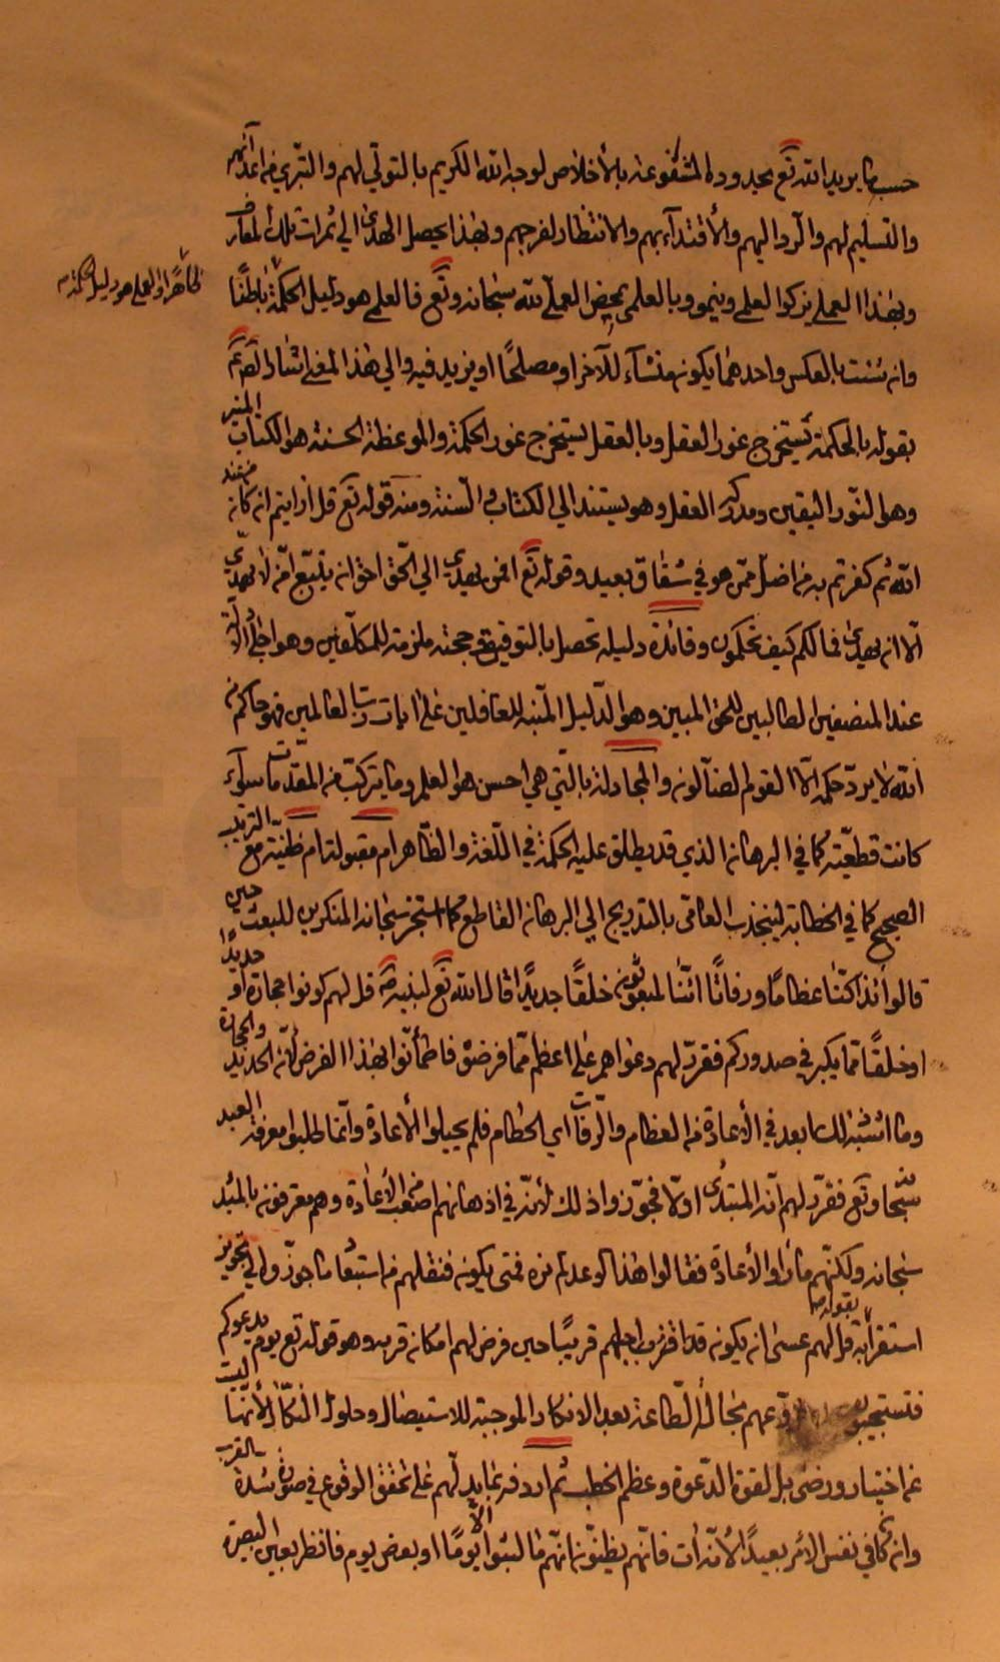 حسب ما يريد الله تع بحدوده المتفوعنه بالأخلاص لوجه الله الكريم بالتولّي لهم والتبرّي من اعدآئهم
والتسليم لهم والردّ اليهم والأقتدآء بهم والانتظار لفرجهم وبهذا يحصل الهدى الي ثمرات تلك المعارف
وبهذا العمل يزكوا العلم وينمو وبالعلم يمحض العمل لله سبحانه وتع فالعلم هو دليل الحكمة باطنًا
ظاهرًا والعمل هو دليل الحكمة
وان شئت بالعكس واحدهما يكون منشآء للآخر او مصلحًا او يزيد فيه والي هذا المعني اشار
بقوله بالحكمة يستخرج غور العقل وبالعقل يستخرج غور الحكمة والموعظة الحسنة هو الكتاب المنير
وهو النور اليقين ومدركه العقل وهو يستند الي الكتاب والسّنة ومنه قوله تع قل أرايتم ان كان من عند
الله ثم كفرتم به من اضلّ ممّن هو في شقاق بعيد وقوله تع افمن يهدي الي الحّق احق ان يتبع امّن لا يهدّي
الّا ان يهدى فمالكم كيف تحكمون وفائدة دليله تحصل بالتوفيق وحجته ملزمة للمكلّفين وهو اجلّ الادلّة
عند المنصفين الطالبين للحق المبين وهو الدّليل المنّبه للغافلين على ايات ربّ العالمين فهو حاكم من
الله لا يردّ حكمه الّا القوم الضآلون والمجادلة بالّتي هي احسن هو العلم وما يتركّب من المقدّمات سوآء
كانت قطعيّة كما في البرهان الذي قد يطلق عليه الحكمة في اللّغة والظّاهر ام مقبولة ام ظنّية مع الترتيب
الصحيح كما في الخطابة لينجذب العامّي بالتدريج الي البرهان القاطع كما سبحانه المنكرين للبعث حين
قالوا أئذا كنّا عظامًا ورفاتًا ائنّا لمبعوثون خلقًا جديدًا قال الله تع لنبيه ص قل لهم كونوا حجارة او حديدًا
او خلقًا ممّا يكبر في صدوركم فقرّر لهم دعواهم على اعظم ممّا فرضوا فاطمأنّوا بهذا الفرض لأنّ الحديد والحجارة
وما اشبه ذلك ابعد في الأعادة من العظام والرّفات اي الحطام فلم يحيلوا الأعادة وانّما طلبوا معرفة المعيد
سبحانه وتع فقرّر لهم انّه المبتدى اولًا فجوّزوا ذلك لأنّه في اذهانهم اصعب من الأعادة وهم معرفون بالمبدء
سبحانه ولكنّهم ما رأوا الأعادة فقالوا هذا لم نره فمتى يكون فنقلهم من استبعاد ما جوّزوه الي تجويز
استقرابه بقوله ص قل لهم عسى ان يكون قد اقترب اجلهم قريبًا حين فرض لهم امكان قربه وهو قوله تع يوم يدعوكم
فتستجيبون بحال الطّاعة بعد الانكار الموجبة للاستيصال وحلول النكال لأنّها ليست
عن اختيار ورضى بل لقوة الدّعوة وعظم الخطب ثم اردفه بما يدلّهم على تحقق الوقوع في صورة شدة القرب
وان كان في نفس الأمر بعيدًا الّا انّه ات فانّهم يظنّون انّهم ما لبثوا الّا يومًا او بعض يوم فانظر بعين البصيرة